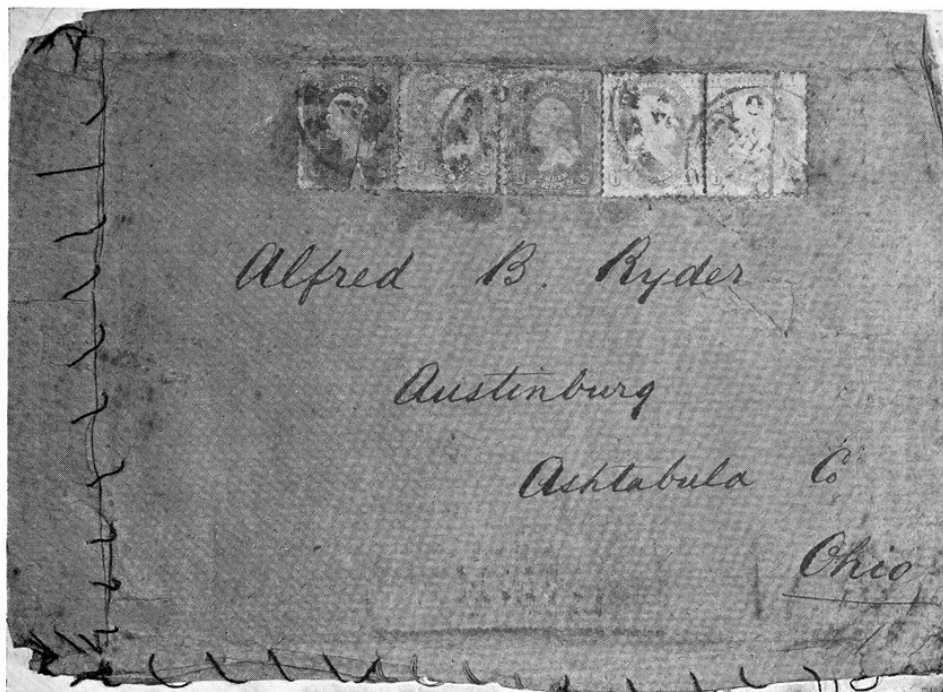 Alfred B. Ryder
Austinburg
Ashtabula Co
Ohio